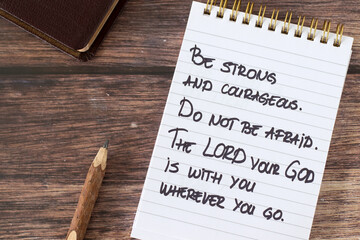 BE STRONG
AND COURAGEOUS.
DO NOT BE AFRAID.
THE LORD YOUR GOD
IS WITH YOU
WHEREVER YOU GO.